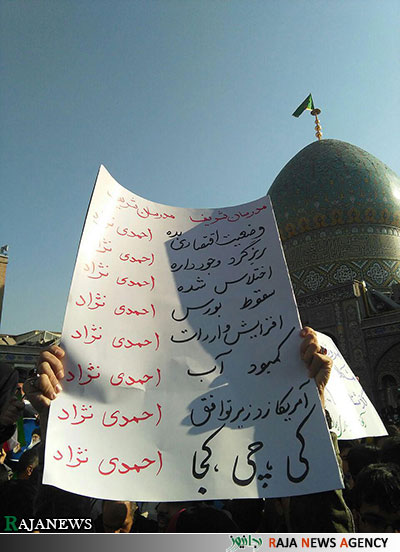 مدرسان شریف مدرسان شریف
وضعیت اقتصادی بده احمدی نژاد
ریزگرد وجود داره احمدی نژاد
اختلاس شده احمدی نژاد
سقوط بورس احمدی نژاد
افزایش واردات احمدی نژاد
کمبود آب احمدی نژاد
آمریکا زد زیر توافق احمدی نژاد
کی ، چی ، کجا احمدی نژاد
RAJANEWS
RAJA NEWS AGENCY